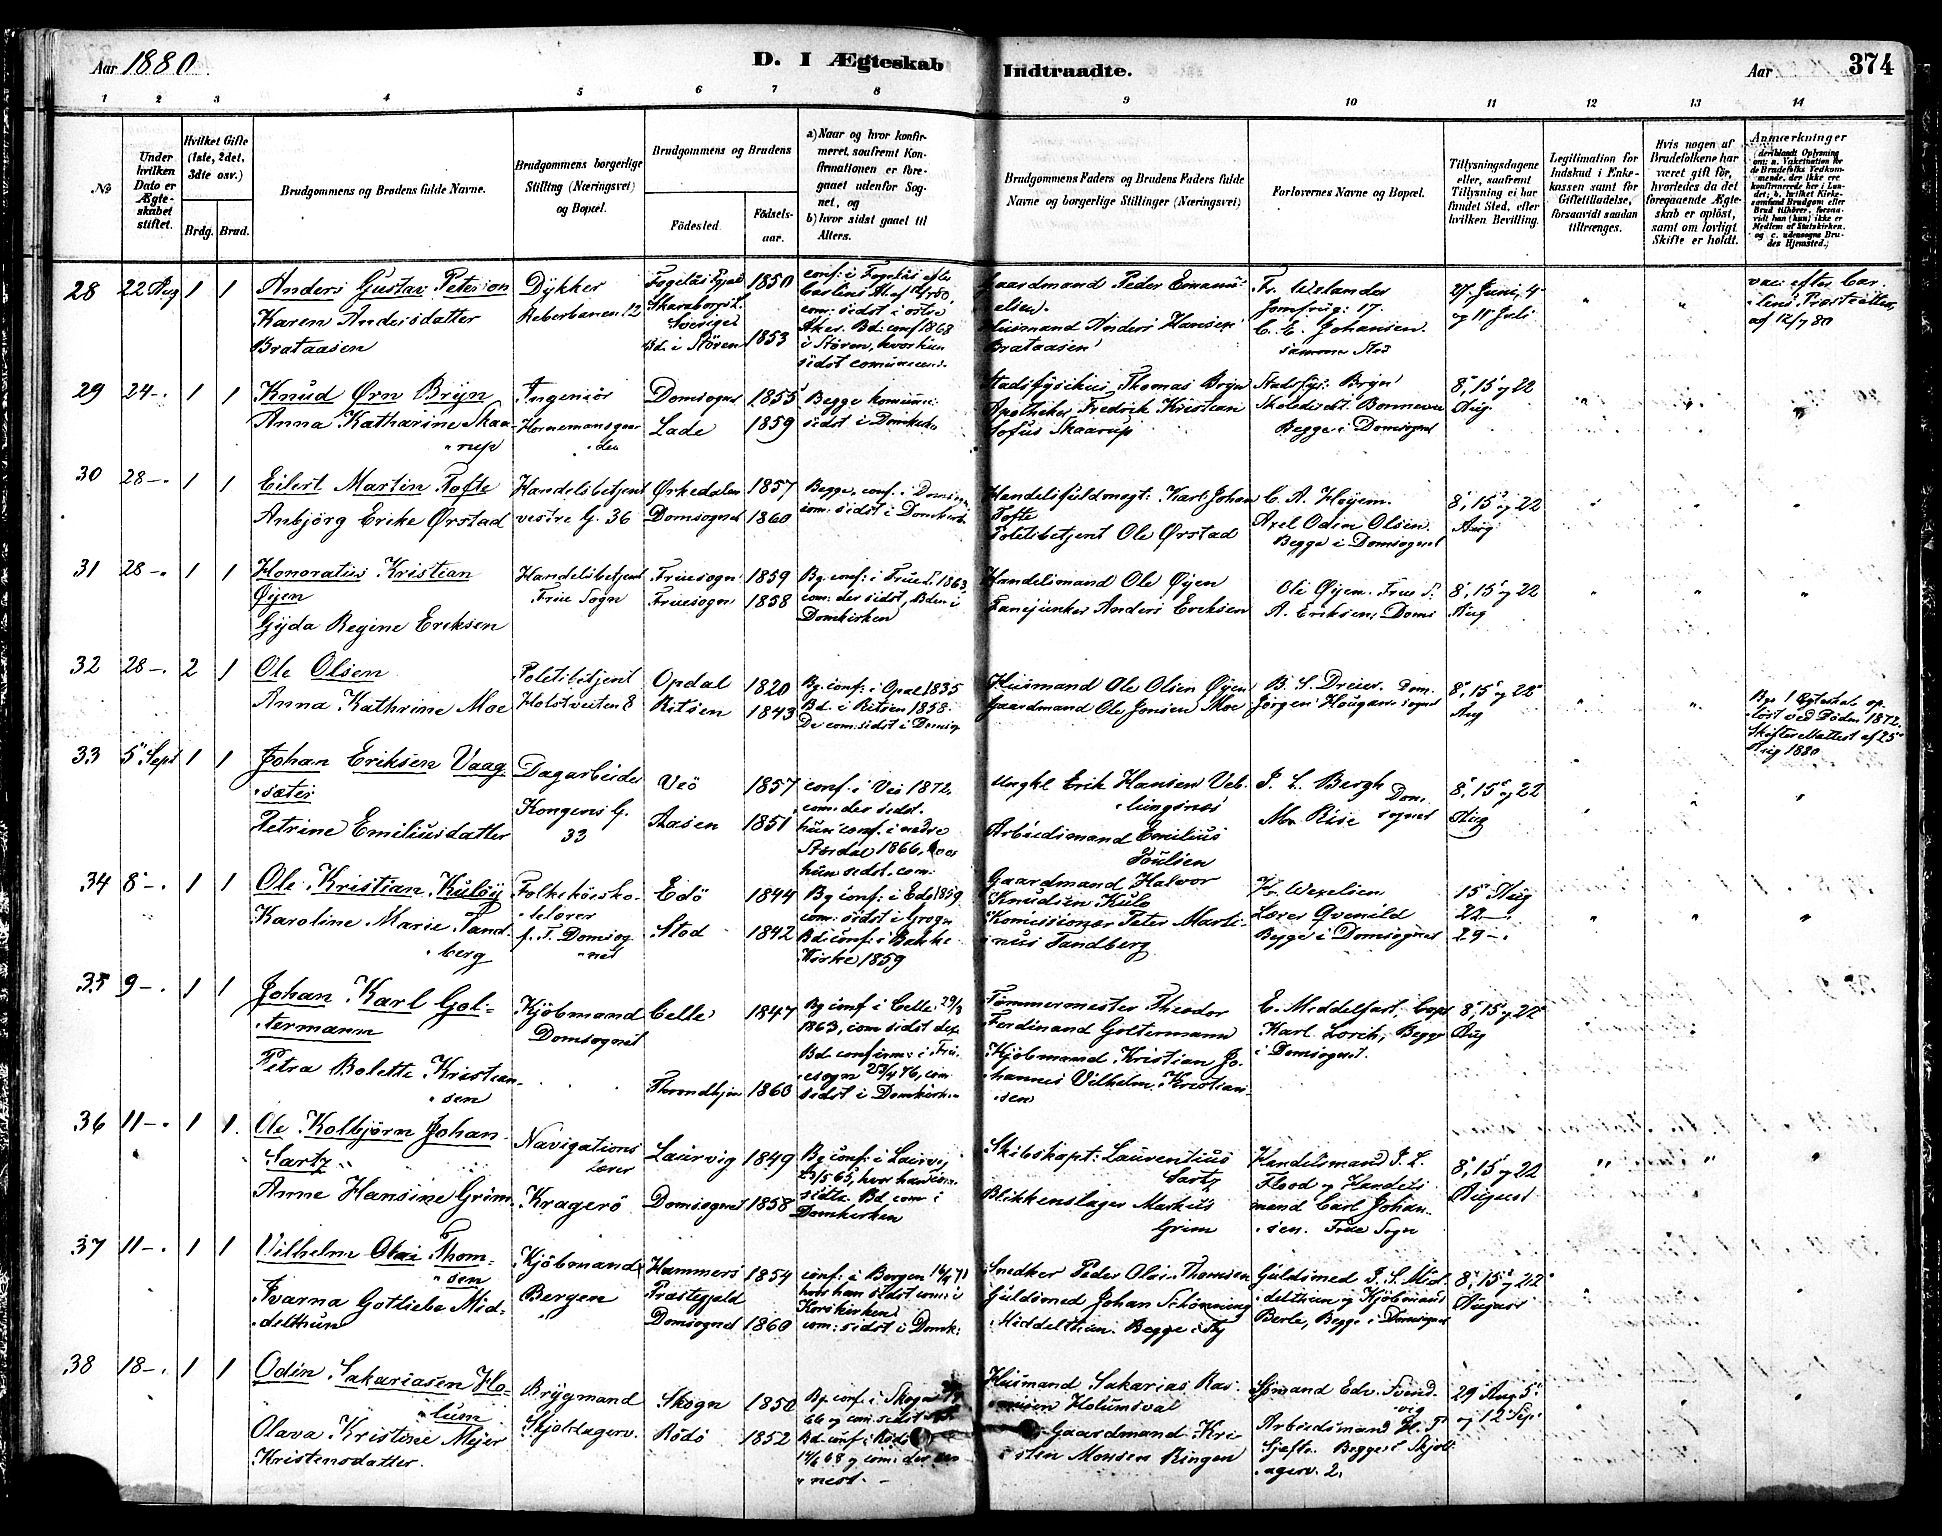 Aar 1880.
D. I Ægteskab Indtraadte.
Aar 374
1 2 3 4 5 6 7 8 9 10 11 12 13 14
No
Under hvilken Dato er Ægteskabet stiftet.
Hvilket Gifte (1ste, 2det, 3dte osv.)
Brdg. Brud.
Brudgommens og Brudens fulde Navne.
Brudgommens borgerlige Stilling (Næringsvei) og Bopæl.
Brudgommens og Brudens
Fødested. Fødselsaar.
a) Naar og hvor konfirmeret, saafremt Konfirmationen er foregaaet udenfor Sognet, og
b) hvor sidst gaaet til Alters.
Brudgommens Faders og Brudens Faders fulde Navne og borgerlige Stillinger (Næringsvei)
Forlovernes Navne og Bopæl.
Tillysningsdagene eller, saafremt Tillysning ei har fundet Sted, efter hvilken Bevilling.
Legitimation for Indskud i Enkekassen samt for Giftetilladelse, forsaavidt saadan tiltrænges.
Hvis nogen af Brudefolkene har været gift før, hvorledes da det foregaaende Ægteskab er opløst, samt om lovligt Skifte er holdt.
Anmærkninger
28 22 Aug 1 1 Anders Gustav Peterson
Karen Andersdatter
Brataasen
Dykker
Reberbanen 12
Sverige
Bd. i Støren
1850
1853
i Støren, hvor hun
Gaardmand Peder Emanu-
elsen
Husmand Anders Hansen
Brataasen
Fr. Welander
Jomfrug: 17.
C. E. Johansen
samme Sted
27 Juni, 4
og 11 Juli
af 12/7 80
29 24-. 1 1 Knud Ørn Bryn
Anna Katharine Skaa-
rup
Ingeniør
Domsognet 1855
Lade 1859
Begge komuni:
sidst i Domkirk.
Stadsfysikus Thomas Bryn
Apotheker Fredrik Kristian
Sofus Skaarup
Stadsfys: Bryn
Begge i Domsognet
8, 15 og 22
Aug.
30 28-. 1 1 Eilert Martin Tofte
Anbjörg Erike Ørstad
Handelsbetjent
vestre G. 36
Ørkedalen 1857
Domsognet 1860
com: sidst i Domkirk.
Handelsfuldmegt: Karl Johan
Tofte
Poletibetjent Ole Ørstad
C. A. Høyem.
Axel Odin Olsen.
Begge i Domsognet
8, 15 og 22
Aug
31 28-. 1 1 Honoratius Kristian
Øyen
Gyda Regine Eriksen
Handelsbetjent
Frue Sogn
Fruesogn 1859
Fruesogn 1858
com: der sidst, Bden i
Domkirken
Handelsmand Ole Øyen
Fanejunker Anders Eriksen
Ole Øyen. Frue S.
A. Eriksen, Doms
8, 15 og 22
Aug
32 28-. 2 1 Ole Olsen
Anna Kathrine Moe
Poletibetjent
Holstveiten 8
Opdal 1820
Ritsen 1843
Bg. conf: i Opdal 1835
Bd. i Ritsen 1858.
De com: sidst i Domsog.
Husmand Ole Olsen Øyen
Gaardmand Ole Jonsen Moe
B. S. Dreier. Dom-
Jörgen Hougan sognet
8, 15 og 22
Aug
Bgs 1 Ægteskab op-
löst ved Döden 1872.
Skifteattest af 25
Aug 1880
33 5 Sept 1 1 Johan Eriksen Vaag-
sæter
Petrine Emiliusdatter
Dagarbeider
Kongens G.
33
Veö 1857
Aasen 1851
conf: i Veö 1872,
com: der sidst.
hun conf: i nedre
Stördal 1866, hvor
hun sidst com:
Ungkl Erik Hansen Veb-
lungsnes
Arbeidsmand Emilius
Poulsen
P. L. Bergh Dom-
M. Riise sognet
8, 15 og 22
Aug
34 8-. 1 1 Ole Kristian Kulöy
Karoline Marie Tand-
berg
Folkehöisko-
lelærer
f. T. Domsog-
net
Edö 1844
Stod 1842
Bg conf: i Edö 1859
Bd. conf: i Bakke
Kirke 1859
Gaardmand Halvor
Knudsen Kulö
Komissionær Peter Marti-
nus Tandberg
Kr. Wexelsen
Lærer Qvenild
Begge i Domsognet
15 Aug
22-.
29-.
35 9-. 1 1 Johan Karl Gol-
termann
Petra Bolette Kristian-
sen
Kjöbmand
Domsognet
Celle 1847
Throndhjem 1860
Bg conf: i Celle 29/3
1863, com sidst der.
Bd. confirm: i Fru-
esogn 23/4 76, com
sidst i Domkirk.
Tømmermester Theodor
Ferdinand Goltermann
Kjöbmand Kristian Jo-
hannes Vilhelm Kristian-
sen
E. Meddelfart, Capt
Karl Lorch, Begge
i Domsognet.
8, 15 og 22
Aug
36 11-. 1 1 Ole Kolbjörn Johan
Sartz
Anne Hansine Grim
Navigations
Lærer
Kragerö
Laurvig 1849
Domsognet 1858
Bg conf: i Laurvig
sidst. Bd. com i
Domkirken
Skibskapt: Laurentius
Sartz
Blikkenslager Markus
Grim
Handelsmand P. L.
Flood og Handels
mand Carl Johan-
sen. Frue Sogn
8, 15 og 22
August
37 11-. 1 1 Vilhelm Olai Thom-
sen
Ivarna Gotliebe Mid-
delthun
Kjöbmand
Bergen
Hammers 1854
Præstegjeld
Domsognet 1860
conf: i Bergen 16/4 71
hvor han sidst com: i
Korskirken
com: sidst i Domk:
Snedker Peder Olsen Thomsen
Guldsmed Johan Schönning
Middelthun. Begge i By
Guldsmed J. S. Mid-
delthun og Kjöbmand
Berle, Begge i Domsognet
8, 15 og 22
August
38 18-. 1 1 Odin Sakariasen Ho-
lum
Olava Kristine Mejer
Kristensdatter.
Brygmand
Skjoldagerv.
Skogn 1850
Rödö 1852
Bg. conf: i Skogn
66 og com: sidst
Bd. conf: i Rödö
14/6 68 og com: der se-
nest. -
Husmand Sakarias Ras-
musen Holumsval
Gaardmand Kri-
sten Monsen Ringen
Sömand Edv. Svend-
vig
Arbeidsmand H. P.
Gjefte. Begge i Skjold-
agerv. 2.
29 Aug 5
og 12 Sep